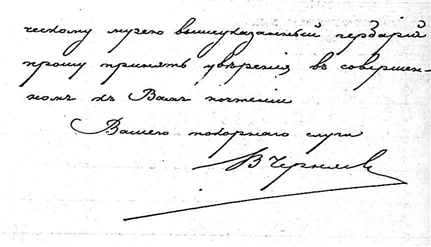 ческому музею вышеуказанный гербарій
прошу принять увѣренія въ совершен-
номъ къ Вамъ почтеніи
Вашего покорнаго слуги
В Черняев